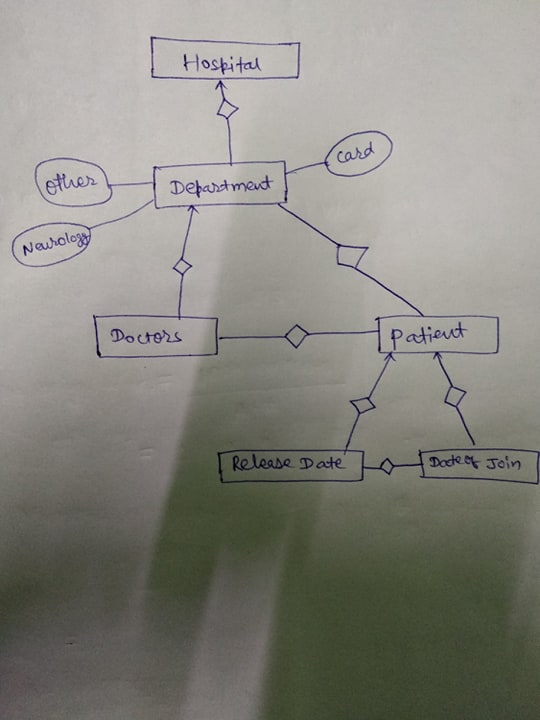 Hospital
card
other
Department
Neurology
Doctors
Patient
Release Date
Date of Join